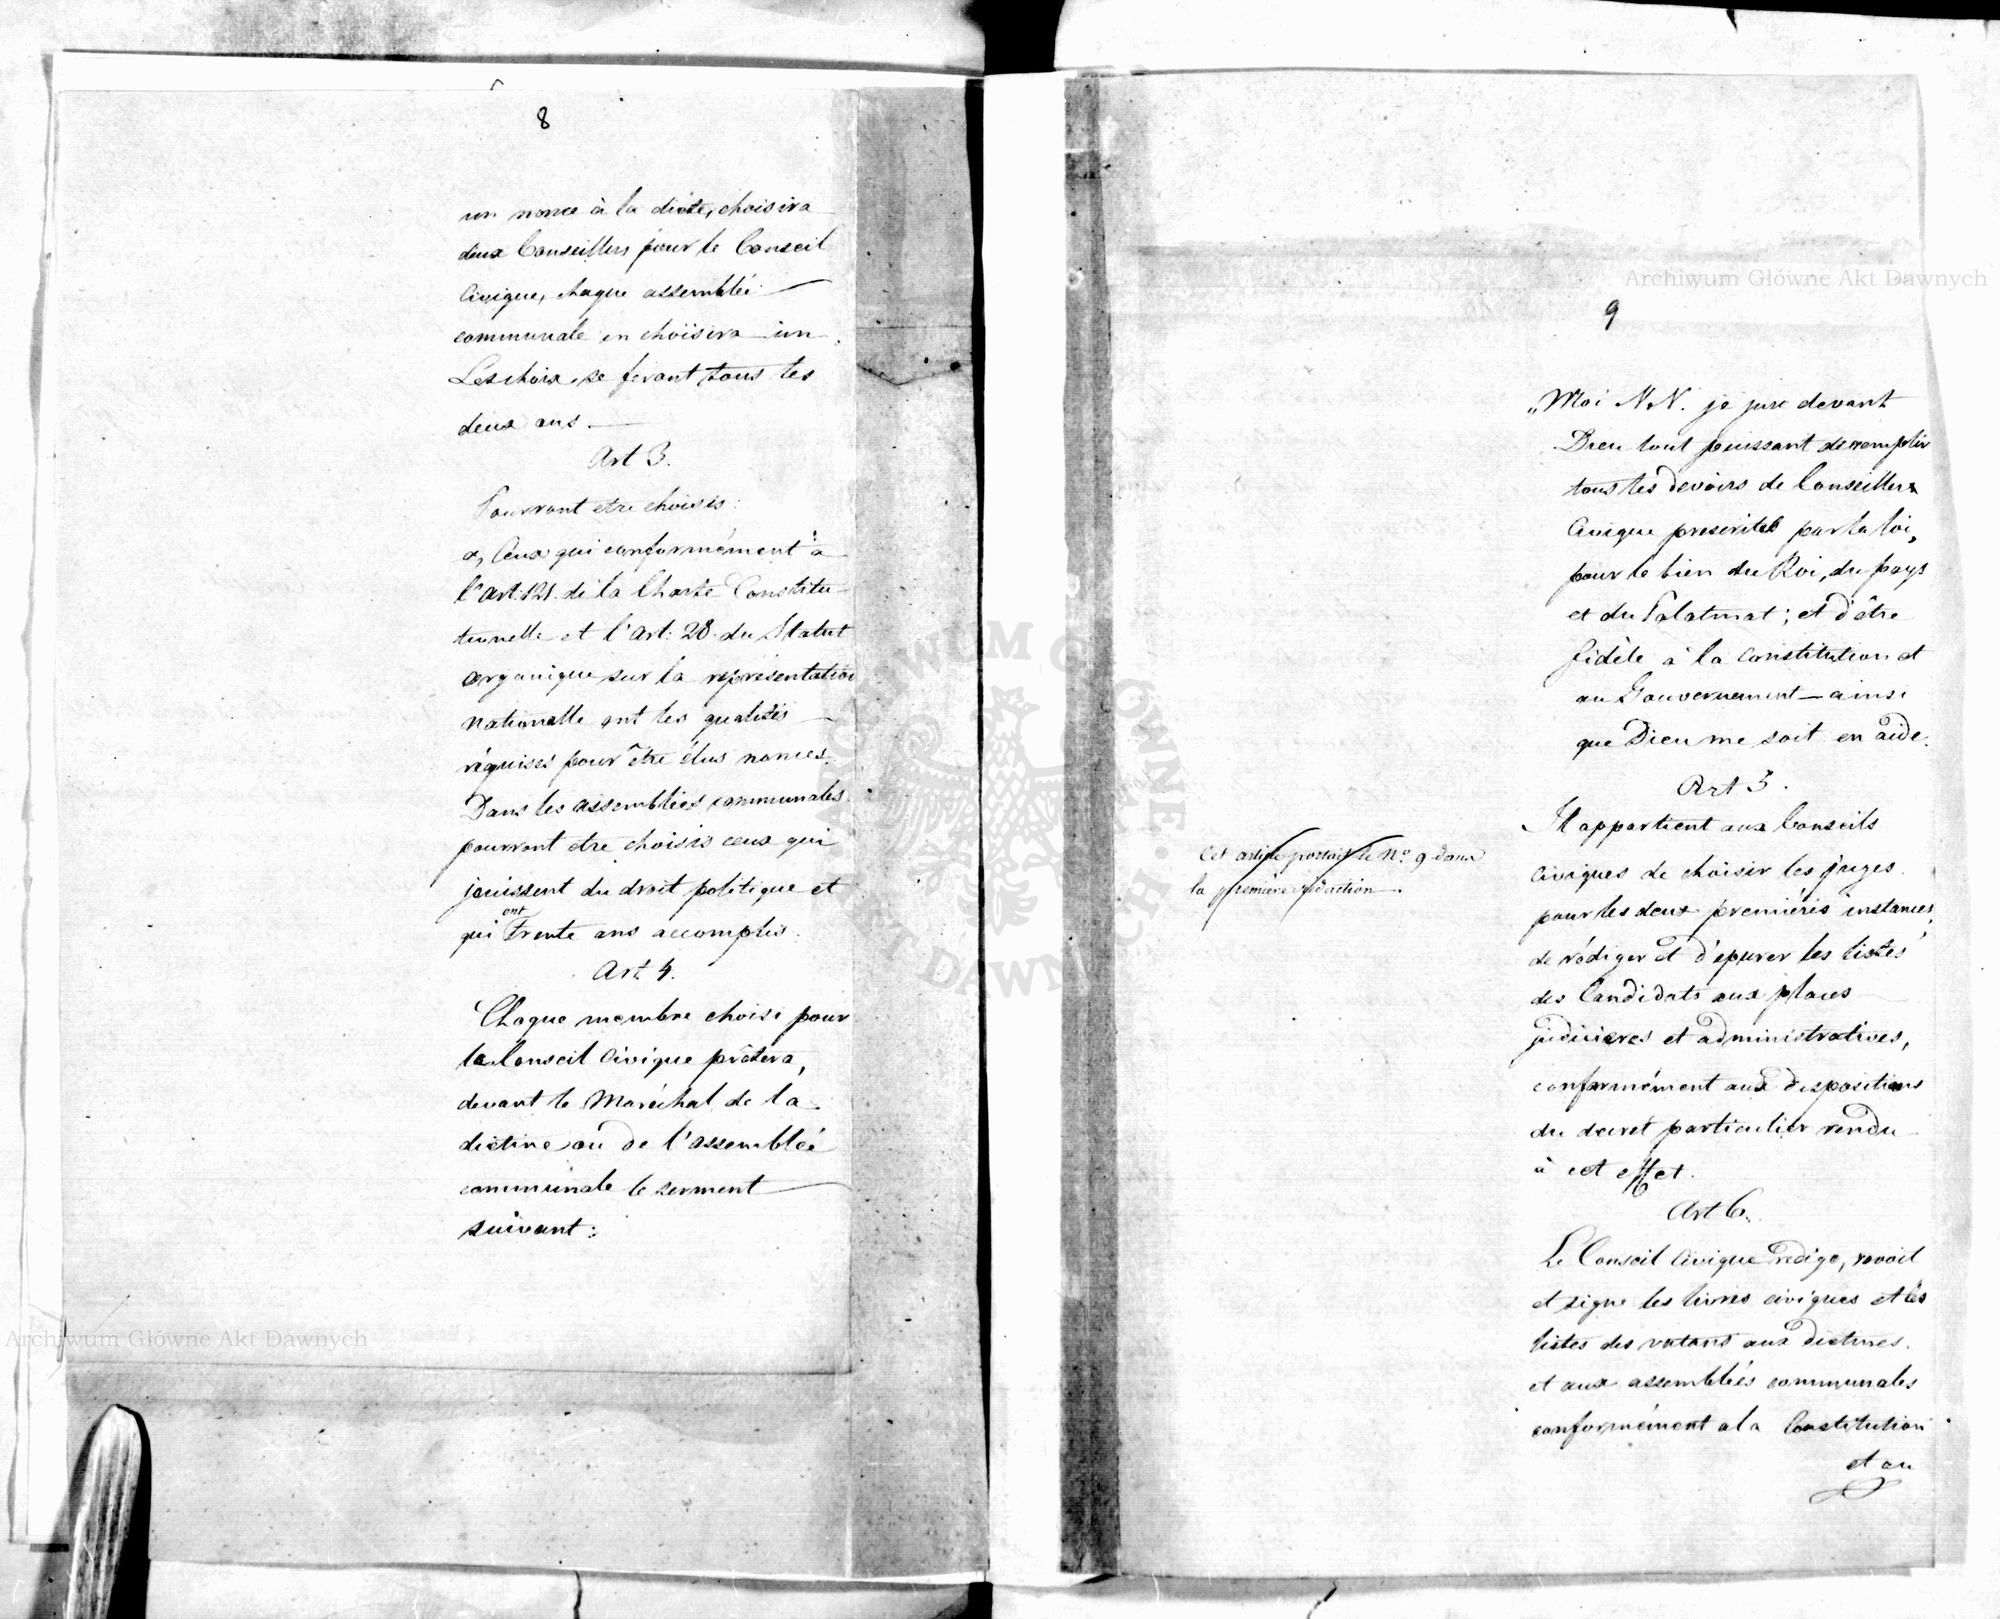 8
un nonce à la diète, choisira
deux Conseillers pour le Conseil
Civique, chaque assemblée
communale en choisira un.
Les choix se feront tous les
deux ans.
Art 3.
Pourront etre choisis:
a, Ceux qui conformément à
l'Art: 121. de la Charte Constitu-
tionnelle et l'Art: 28. du Statut
organique sur la représentation
nationalle ont les qualités
réquises pour être élus nonces.
Dans les assemblées communales
pourront etre choisis ceux qui
jouissent du droit politique et
qui ont trente ans accomplis.
Art 4.
Chaque membre choisi pour
le Conseil Civique prêtera,
devant le Maréchal de la
diètine ou de l'assemblée
communale le serment
suivant:
Archiwum Główne Akt Dawnych
Archiwum Główne Akt Dawnych
9
„Moi N.N. je jure devant
Dieu tout puissant de remplir
tous les devoirs de Conseiller
Civique prescrites par la loi,
pour le bien du Roi, du pays
et du Palatinat; et d'être
fidèle à la constitution et
au Gouvernement — ainsi
que Dieu me soit en aide.
Art 5.
Il appartient aux Conseils
Civiques de choisir les juges
pour les deux premières instances,
de rédiger et d'épurer les listes
des Candidats aux places
judiciares et administratives,
conformément aux dispositions
du decret particulier rendu
à cet effet.
Cet article portait le No. 9 dans
la première rédaction.
Art 6.
Le Conseil Civique redige, revoit
et signe les livres civiques et les
listes des votans aux dietines.
et aux assemblées communales
conformément a la Constitution
et au
ARCHIWUM GŁÓWNE AKT DAWNYCH